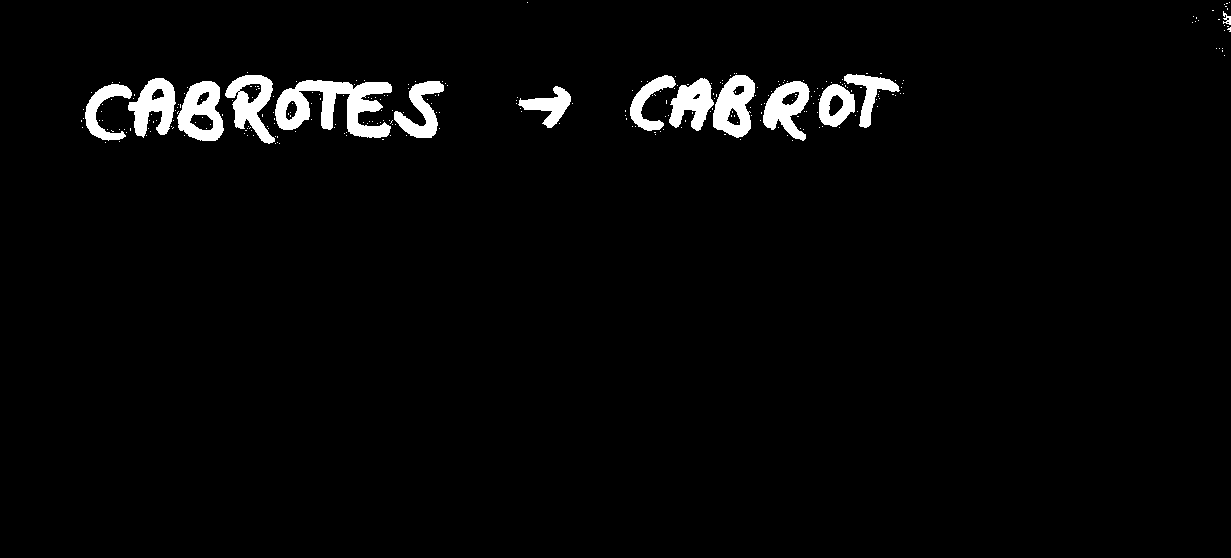 CABROTES → CABROT